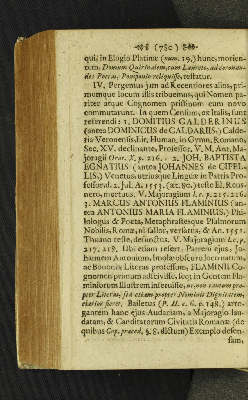 (780)
quis in Elogio Platinæ (num. 19.) hunc, morien-
tem, Domum Quirinalem, cum Laureto, ad coronan-
dos Poetas, Pomponio reliquisse, testatur.
IV. Pergemus jam ad Recentiores alios, pri-
mumque locum illis tribuemus, qui Nomen pa-
riter atque Cognomen pristinum cum novo
commutarunt. In quem Censum, ex Italis, sunt
referendi: 1. DOMITIUS CALDERINUS
(antea DOMINICUS de CALDARIIS,) Calde-
rio Veronensis, Lit. Human. in Gymn. Romano,
Sec. XV. declinante, Professor. V. M. Ant. Ma-
joragii Orat. X. p. 216. 2. JOH. BAPTISTA
EGNATIUS (antea JOHANNES de CIPEL-
LIS,) Venetus utriusque Linguæ in Patria Pro-
fessor, d. 2. Jul. A. 1553. (æt. 80.) teste El. Reus-
nero, mortuus. V. Majoragium l. c. p. 215. 216.
3. MARCUS ANTONIUS FLAMINIUS (an-
tea ANTONIUS MARIA FLAMINIUS,) Phi-
lologus & Poeta, Metaphrasteque Psalmorum
Nobilis, Romæ, ni fallor, versatus, & An. 1551.
Thuano teste, defunctus. V. Majoragium l. c. p.
217. 218. Ubi etiam refert, Patrem ejus, Jo-
hannem Antonium, Imolæ obscuro loco natum,
ac Bononiæ Literas professum, FLAMINII Co-
gnomen primum adscivisse,
miniorum Illustrem inseruisse, ut, non tantum pro-
pter Literas, sed etiam propter Nominis Dignitatem,
clarior fieret. Bailetus (P. II. c. 6. p. 148.) arro-
gantem hanc ejus Audaciam, a Majoragio lau-
datam, & Canditatorum Civitatis Romanæ (de
quibus Cap. præced. §. 8. diximus) Exemplo defen-
sam,